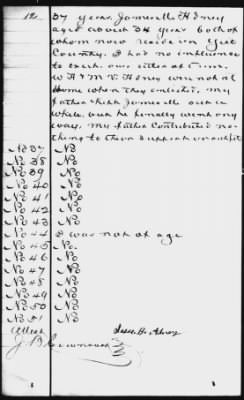 12
37 years, Jamesville Henry
aged about 34 years both of
whom now reside in
County. I had no influence
to exert over either of them.
W A & M V Henry were not at
Home when they enlisted, my
father kept Jamesville out a
while, but he finally went any
way, my father Contributed no-
thing to their support in outfit
No 37 No
No 38 No
No 39 No
No 40 No
No 41 No
No 42 No
No 43 No
No 44 I was not of age
No 45 No.
No 46 No
No 47 No
No 48 No
No 49 No
No 50 No
No 51 No
Attest
J. B.